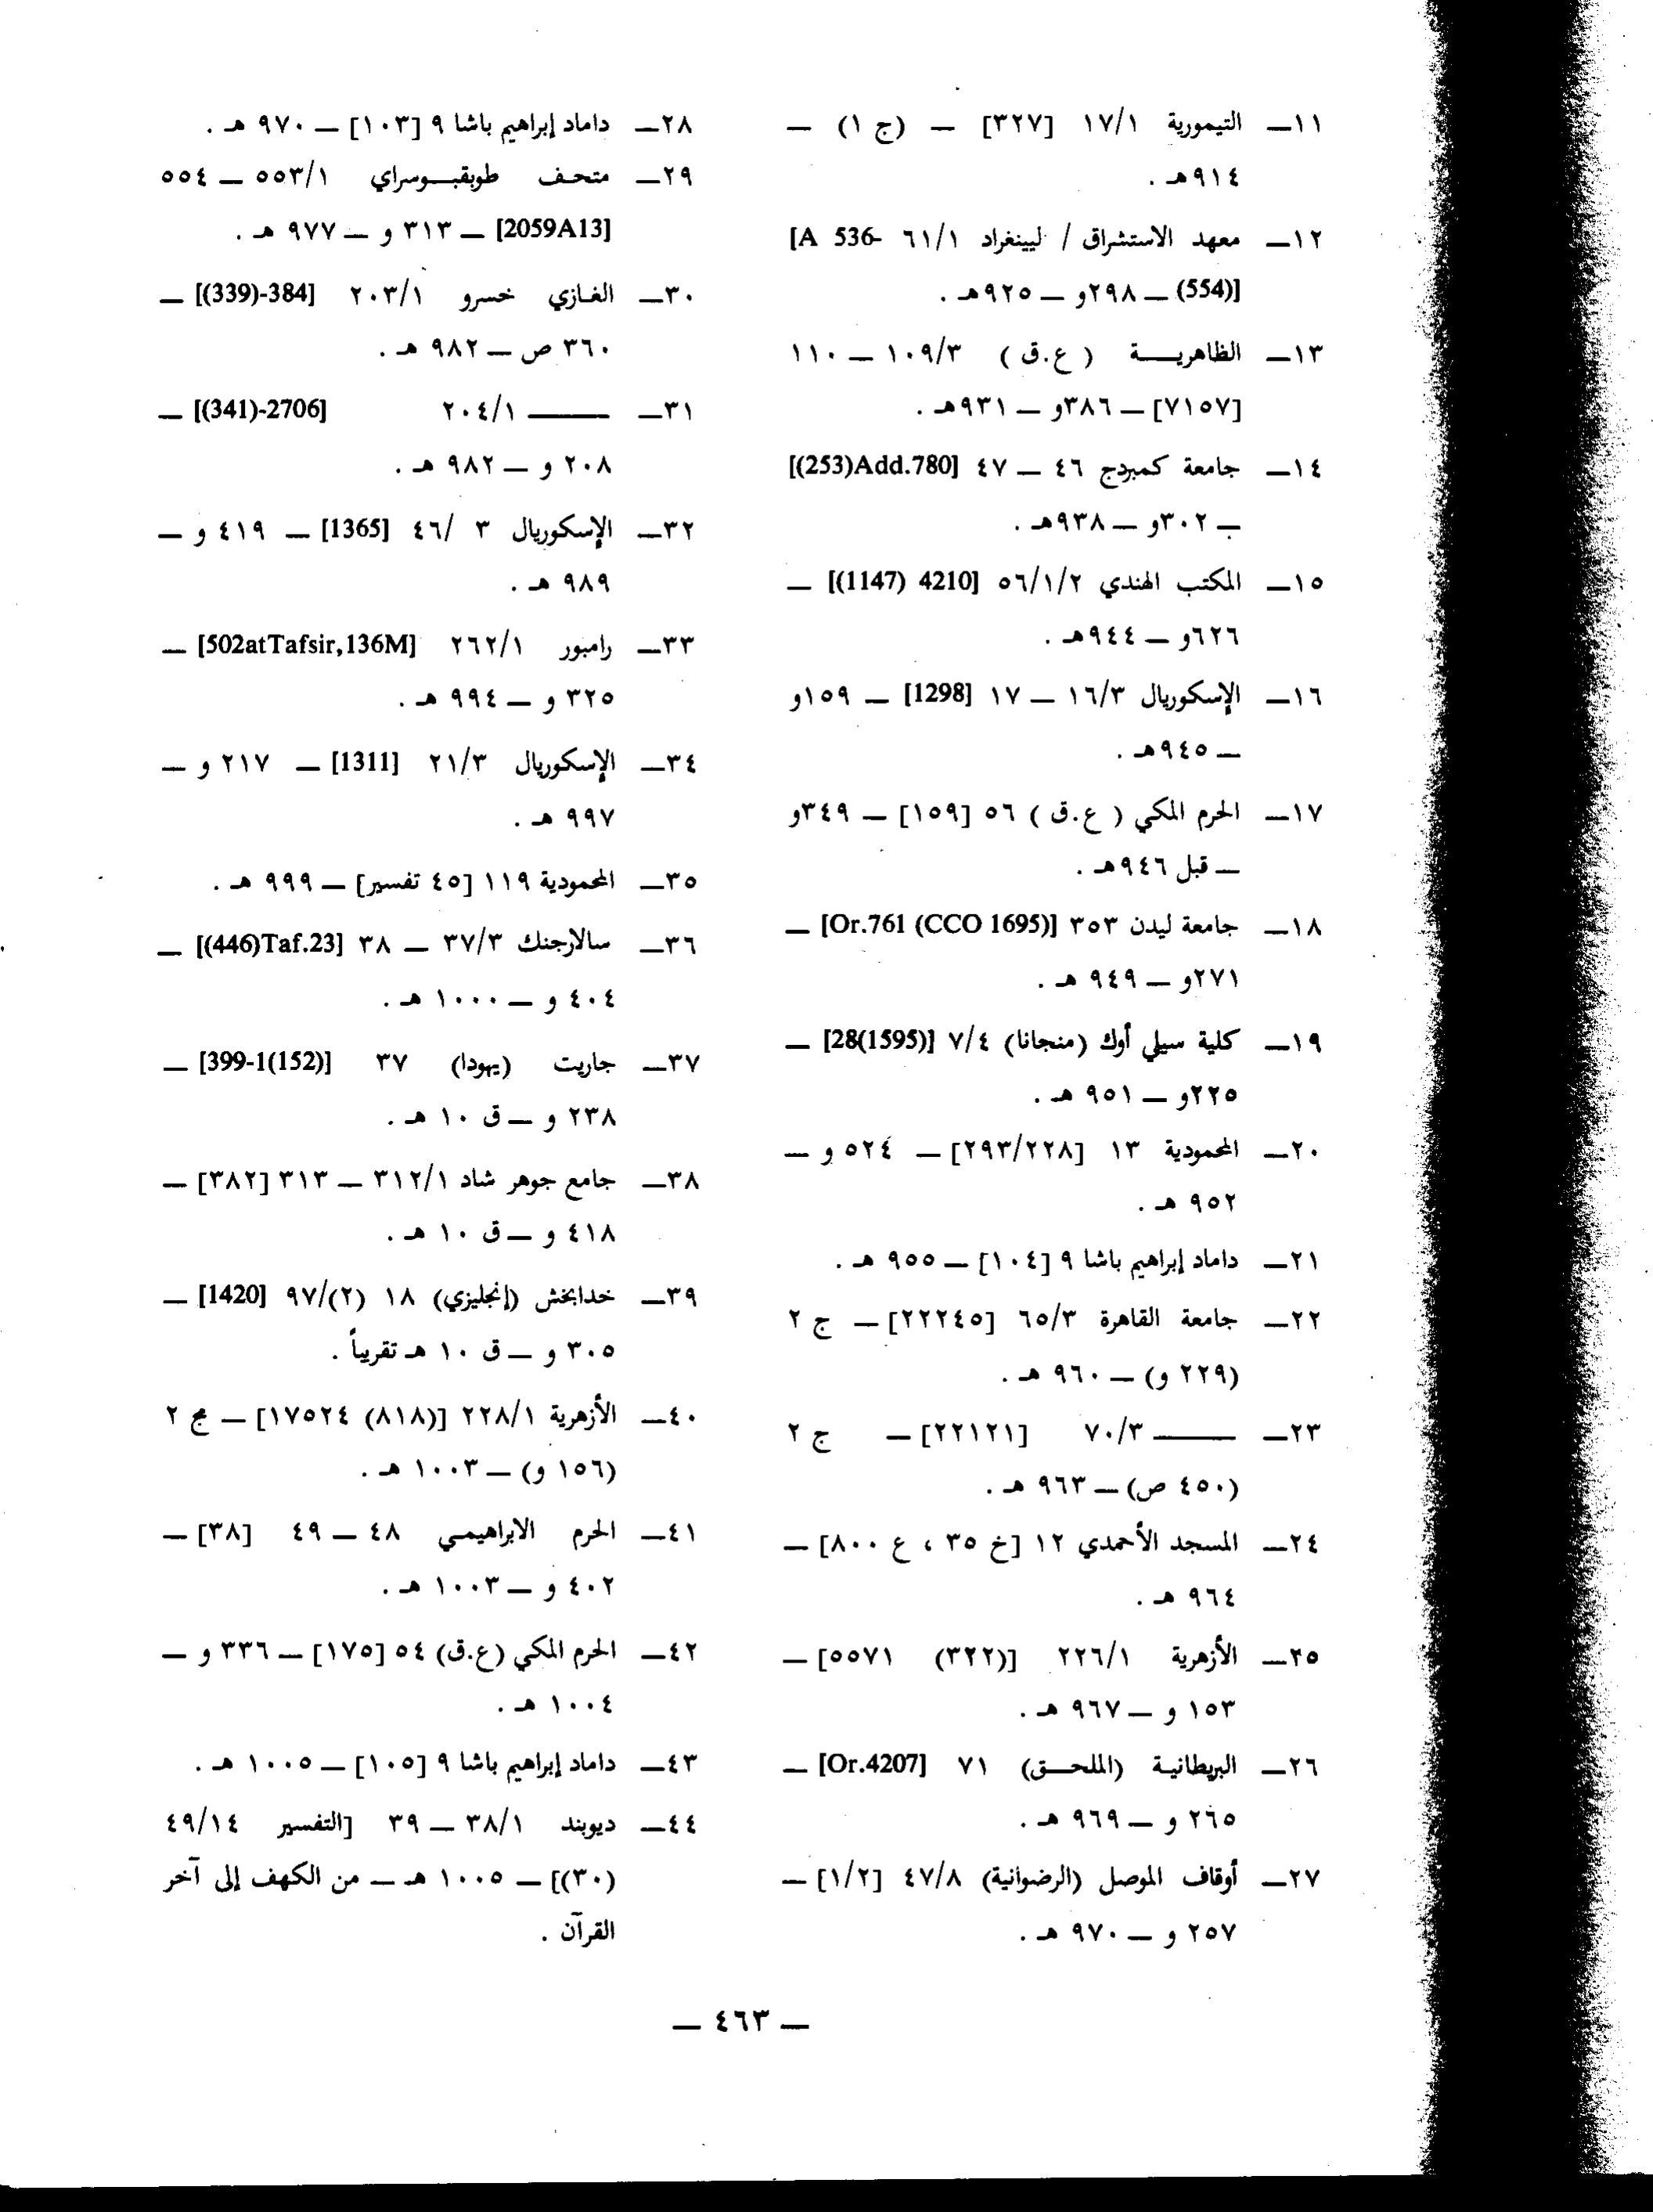 ١١ــ التيمورية ١٧/١ [٣٢٧] ــ (ج ١) ــ
٩١٤هـ .
١٢ــ معهد الاستشراق / ليينغراد ٦١/١ [A 536-
(554)] ــ ٢٩٨و ــ ٩٢٥هـ .
١٣ــ الظاهريــــة ( ع.ق ) ١٠٩/٣ ــ ١١٠
[٧١٥٧] ــ ٣٨٦و ــ ٩٣١هـ .
١٤ــ جامعة كمبردج ٤٦ ــ ٤٧ [(253)Add.780]
ــ ٣٠٢و ــ ٩٣٨هـ .
١٥ــ المكتب الهندي ٥٦/١/٢ [4210 (1147)] ــ
٦٢٦و ــ ٩٤٤هـ .
١٦ــ الإسكوريال ١٦/٣ ــ ١٧ [1298] ــ ١٥٩و
ــ ٩٤٥هـ .
١٧ــ الحرم المكي ( ع.ق ) ٥٦ [١٥٩] ــ ٣٤٩و
ــ قبل ٩٤٦هـ .
١٨ــ جامعة ليدن ٣٥٣ [Or.761 (CCO 1695)] ــ
٢٧١و ــ ٩٤٩ هـ .
١٩ــ كلية سيلي أوك (منجانا) ٧/٤ [28(1595)] ــ
٢٢٥و ــ ٩٥١ هـ .
٢٠ــ المحمودية ١٣ [٢٩٣/٢٢٨] ــ ٥٢٤ و ــ
٩٥٢ هـ .
٢١ــ داماد إبراهيم باشا ٩ [١٠٤] ــ ٩٥٥ هـ .
٢٢ــ جامعة القاهرة ٦٥/٣ [٢٢٢٤٥] ــ ج ٢
(٢٢٩ و) ــ ٩٦٠ هـ .
٢٣ــ ــــــــ ٧٠/٣ [٢٢١٢١] ــ ج ٢
(٤٥٠ ص) ــ ٩٦٣ هـ .
٢٤ــ المسجد الأحمدي ١٢ [خ ٣٥ ، ع ٨٠٠] ــ
٩٦٤ هـ .
٢٥ــ الأزهرية ٢٢٦/١ [(٣٢٢) ٥٥٧١] ــ
١٥٣ و ــ ٩٦٧ هـ .
٢٦ــ البريطانية (الملحــق) ٧١ [Or.4207] ــ
٢٦٥ و ــ ٩٦٩ هـ .
٢٧ــ أوقاف الموصل (الرضوانية) ٤٧/٨ [١/٢] ــ
٢٥٧ و ــ ٩٧٠ هـ .
٢٨ــ داماد إبراهيم باشا ٩ [١٠٣] ــ ٩٧٠ هـ .
٢٩ــ متحف طوبقبــوسراي ٥٥٣/١ ــ ٥٥٤
[2059A13] ــ ٣١٣ و ــ ٩٧٧ هـ .
٣٠ــ الغازي خسرو ٢٠٣/١ [(339)-384] ــ
٣٦٠ ص ــ ٩٨٢ هـ .
٣١ــ ــــــــ ٢٠٤/١ [(341)-2706] ــ
٢٠٨ و ــ ٩٨٢ هـ .
٣٢ــ الإسكوريال ٣ /٤٦ [1365] ــ ٤١٩ و ــ
٩٨٩ هـ .
٣٣ــ رامبور ٢٦٢/١ [502atTafsir,136M] ــ
٣٢٥ و ــ ٩٩٤ هـ .
٣٤ــ الإسكوريال ٢١/٣ [1311] ــ ٢١٧ و ــ
٩٩٧ هـ .
٣٥ــ المحمودية ١١٩ [٤٥ تفسير] ــ ٩٩٩ هـ .
٣٦ــ سالارجنك ٣٧/٣ ــ ٣٨ [(446)Taf.23] ــ
٤٠٤ و ــ ١٠٠٠ هـ .
٣٧ــ جاريت (يهودا) ٣٧ [399-1(152)] ــ
٢٣٨ و ــ ق ١٠ هـ .
٣٨ــ جامع جوهر شاد ٣١٢/١ ــ ٣١٣ [٣٨٢] ــ
٤١٨ و ــ ق ١٠ هـ .
٣٩ــ خدابخش (إنجليزي) ١٨ (٢)/٩٧ [1420] ــ
٣٠٥ و ــ ق ١٠ هـ تقريباً .
٤٠ــ الأزهرية ٢٢٨/١ [(٨١٨) ١٧٥٢٤] ــ مج ٢
(١٥٦ و) ــ ١٠٠٣ هـ .
٤١ــ الحرم الابراهيمي ٤٨ ــ ٤٩ [٣٨] ــ
٤٠٢ و ــ ١٠٠٣ هـ .
٤٢ــ الحرم المكي (ع.ق) ٥٤ [١٧٥] ــ ٣٣٦ و ــ
١٠٠٤ هـ .
٤٣ــ داماد إبراهيم باشا ٩ [١٠٥] ــ ١٠٠٥ هـ .
٤٤ــ ديوبند ٣٨/١ ــ ٣٩ [التفسير ٤٩/١٤
(٣٠)] ــ ١٠٠٥ هـ ــ من الكهف إلى آخر
القرآن .
ــ ٤٦٣ ــ